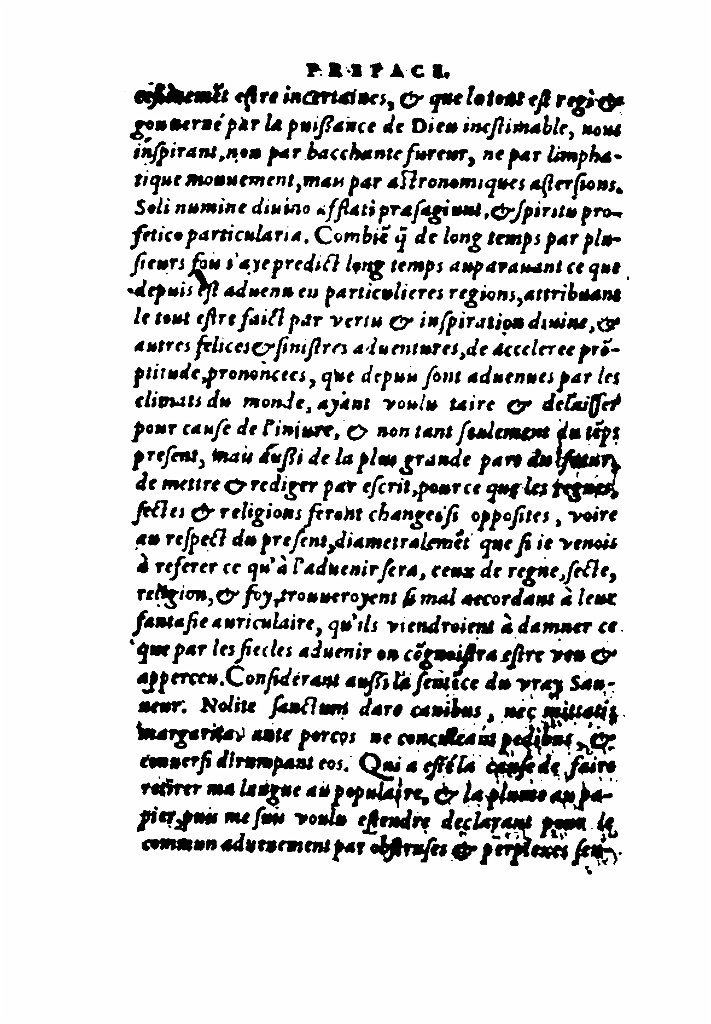 PREFACE.
estre incertaines, & que le tout est regi &
gouuerné par la puißance de Dieu inestimable, nous
inspirant, non par bacchante fureur, ne par limpha-
tique mouuement, mais par astronomiques assersions.
Soli numine diuino afflati præsagiunt, & spiritu pro-
fetico particularia. Combiẽ q̃ de long temps par plu-
sieurs fois i'aye predict long temps auparauant ce que
depuis est aduenu en particulieres regions, attribuant
le tout estre faict par vertu & inspiration diuine, &
autres felices & sinistres aduentures, de acceleree prõ-
ptitude, prononcees, que depuis sont aduenues par les
climats du monde, ayant voulu taire & delaisser
pour cause de l'iniure, & non tant seulement du tẽps
present, mais außi de la plus grande part du futur,
de mettre & rediger par escrit, pource que les regnes,
sectes & religions feront changes si opposites, voire
au respect du present, diametralemẽt que si ie venois
à referer ce qu'à l'aduenir sera, ceux de regne, secte,
religion, & foy, trouueroyent si mal accordant à leur
fantasie auriculaire, qu'ils viendroient à damner ce
que par les siecles aduenir on cõgnoistra estre veu &
apperceu. Considerant aussi la sentẽce du vray Sau-
ueur. Nolite sanctum dare canibus, nec mittatis
margaritas ante porcos ne conculcent pedibus, &
conuersi dirumpant eos. Qui a esté la cause de faire
retirer ma langue au populaire, & la plume au pa-
pier, puis me suis voulu estendre declarant pour le
commun aduenement par obstruses & perplexes sen-